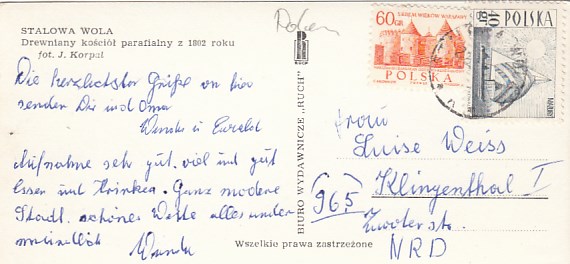 STALOWA WOLA
Drewniany kościół parafialny z 1802 roku
fot. J. Korpal
Die herzlichsten Grüße von hier
senden Dir und Oma
Wanda u.
Aufnahme sehr gut. viel und gut
Essen und Trinken. Ganz moderne
Stadt. schöne alles
Wanda
Polen
BIURO WYDAWNICZE „RUCH”
60 GR
POLSKA
POLSKA
40 GR
MAZURY
Frau
Luise Weiss
Klingenthal I
(965)
NRD
Wszelkie prawa zastrzeżone